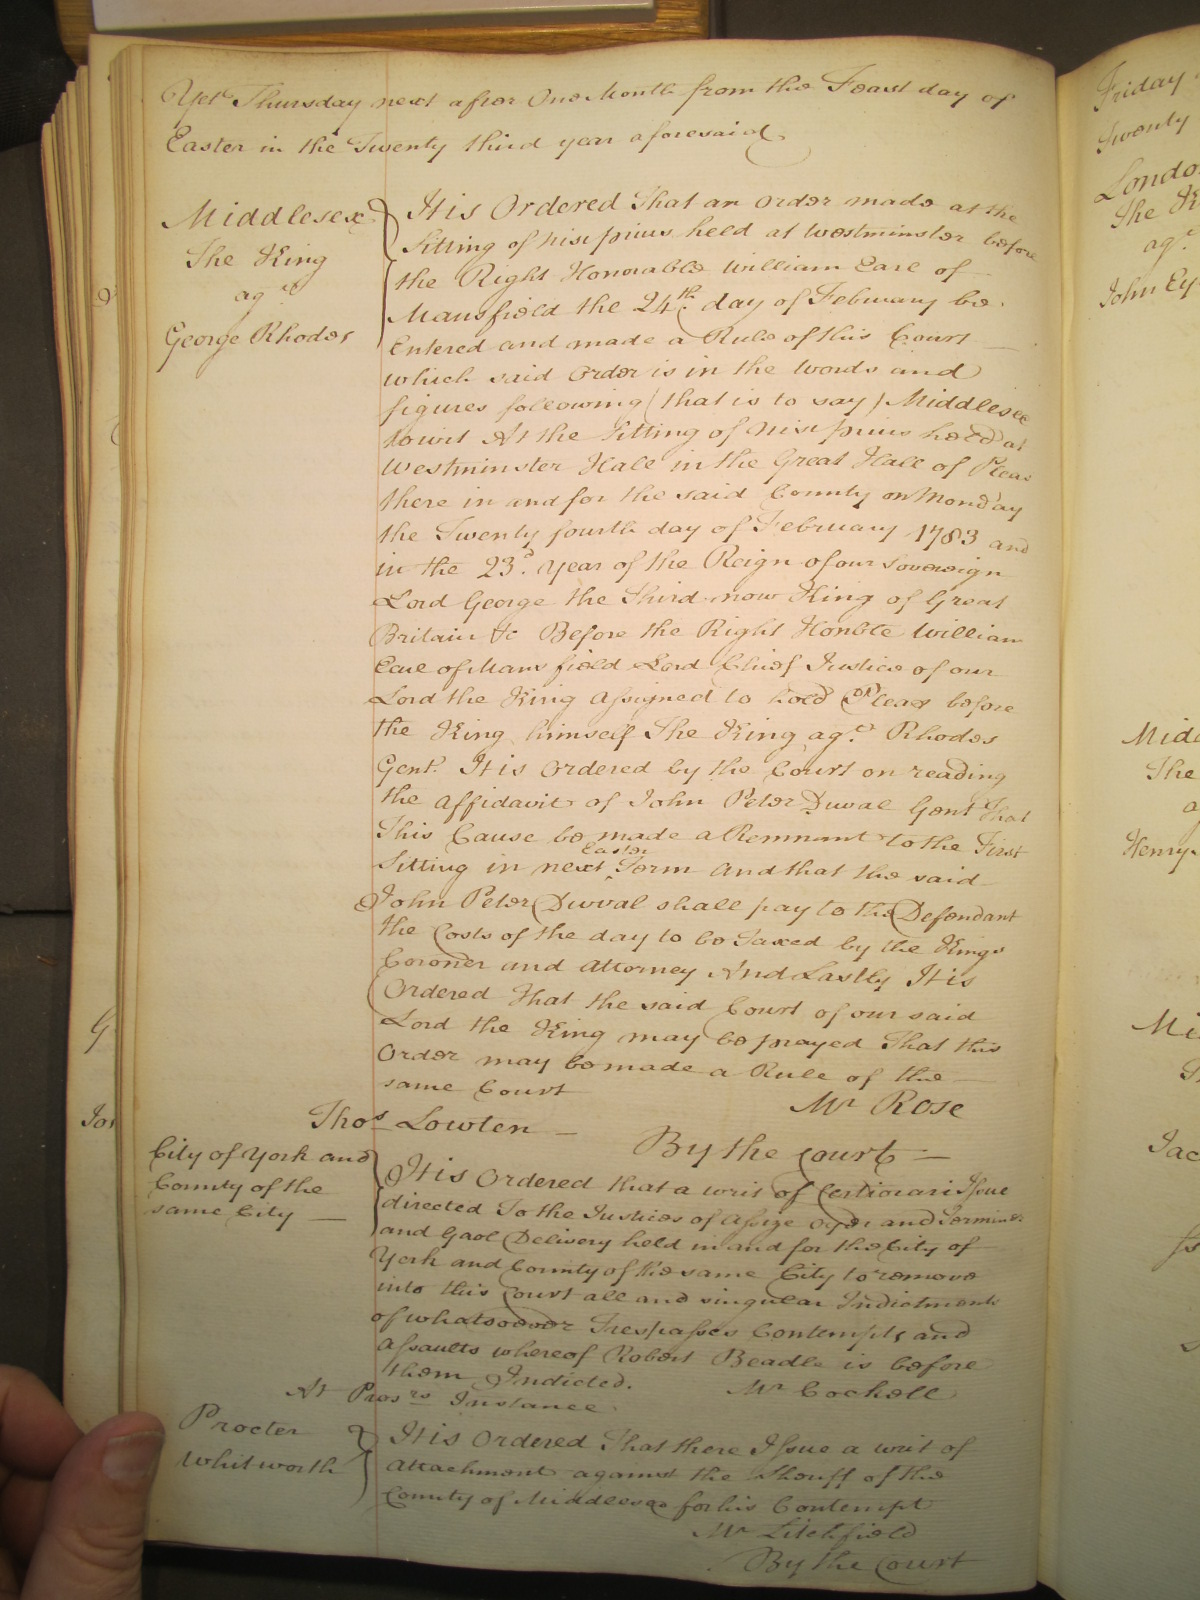 Yet Thursday next after One Month from the Feast day of
Easter in the Twenty third year aforesaid
Middlesex
The King
agt
George Rhodes
It is Ordered That an Order made at the
Sitting of Nisi prius held at Westminster before
the Right Honorable William Earl of
Mansfield the 24th day of February be
Entered and made a Rule of this Court
which said Order is in the Words and
figures following (that is to say) Middlesex
towit At the Sitting of Nisi prius held at
Westminster Hall in the Great Hall of Pleas
there in and for the said County on Monday
the Twenty fourth day of February 1783 and
in the 23d. Year of the Reign of our Sovereign
Lord George the Third now King of Great
Britain &c Before the Right Honble William
Earl of Mansfield Lord Chief Justice of our
Lord the King assigned to hold Pleas before
the King himself The King agt. Rhodes
Gent. It is Ordered by the Court on reading
the affidavit of John Peter Duval Gent That
This Cause be made a Remnant to the First
Sitting in next Easter Term And that the said
John Peter Duval shall pay to the Defendant
the Costs of the day to be Taxed by the Kings
Coroner and Attorney And Lastly It is
Ordered That the said Court of our said
Lord the King may be prayed That this
Order may be made a Rule of the
same Court
Mr Rose
Thos Lowten
By the Court
City of York and
County of the
same City
It is Ordered that a writ of Certiorari Issue
directed To the Justices of Assize Oyer and Terminer
and Gaol Delivery held in and for the City of
York and County of the same City to remove
into this Court all and singular Indictments
of whatsoever Trespasses Contempts and
Assaults whereof Robert Beadle is before
them Indicted.
Mr Cockell
At Prosrs Instance
Procter
Whitworth
It is Ordered That there Issue a writ of
Attachment against the Sheriff of the
County of Middlesex for his Contempt
Mr Litchfield
By the Court
Friday
Twenty
London
The K
agt
John Ey
Midd
The
a
Henry
Mi
Jac